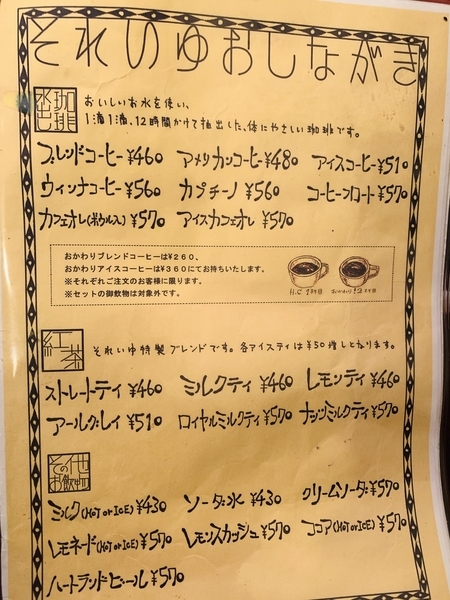 それいゆおしながき
水出し珈琲
おいしいお水を使い、
1滴1滴、12時間かけて抽出した、体にやさしい珈琲です。
ブレンドコーヒー¥460 アメリカンコーヒー¥480 アイスコーヒー¥510
ウィンナコーヒー¥560 カプチーノ¥560 コーヒーフロート¥570
カフェオレ(ホットorアイス)¥570 アイスカフェオレ¥570
おかわりブレンドコーヒーは¥260、
おかわりアイスコーヒーは¥360にてお持ちいたします。
※それぞれご注文のお客様に限ります。
※セットの御飲物は対象外です。
H.C 1杯目 おかわり!2杯目
紅茶
それいゆ特製ブレンドです。各アイスティは¥50増しとなります。
ストレートティ¥460 ミルクティ¥460 レモンティ¥460
アールグレイ¥510 ロイヤルミルクティ¥570 ナッツミルクティ¥570
その他お飲物
ミルク(HOT or ICE)¥430 ソーダ水¥430 クリームソーダ¥570
レモネード(HOT or ICE)¥570 レモンスカッシュ¥570 ココア(HOT or ICE)¥570
ハートランドビール¥570